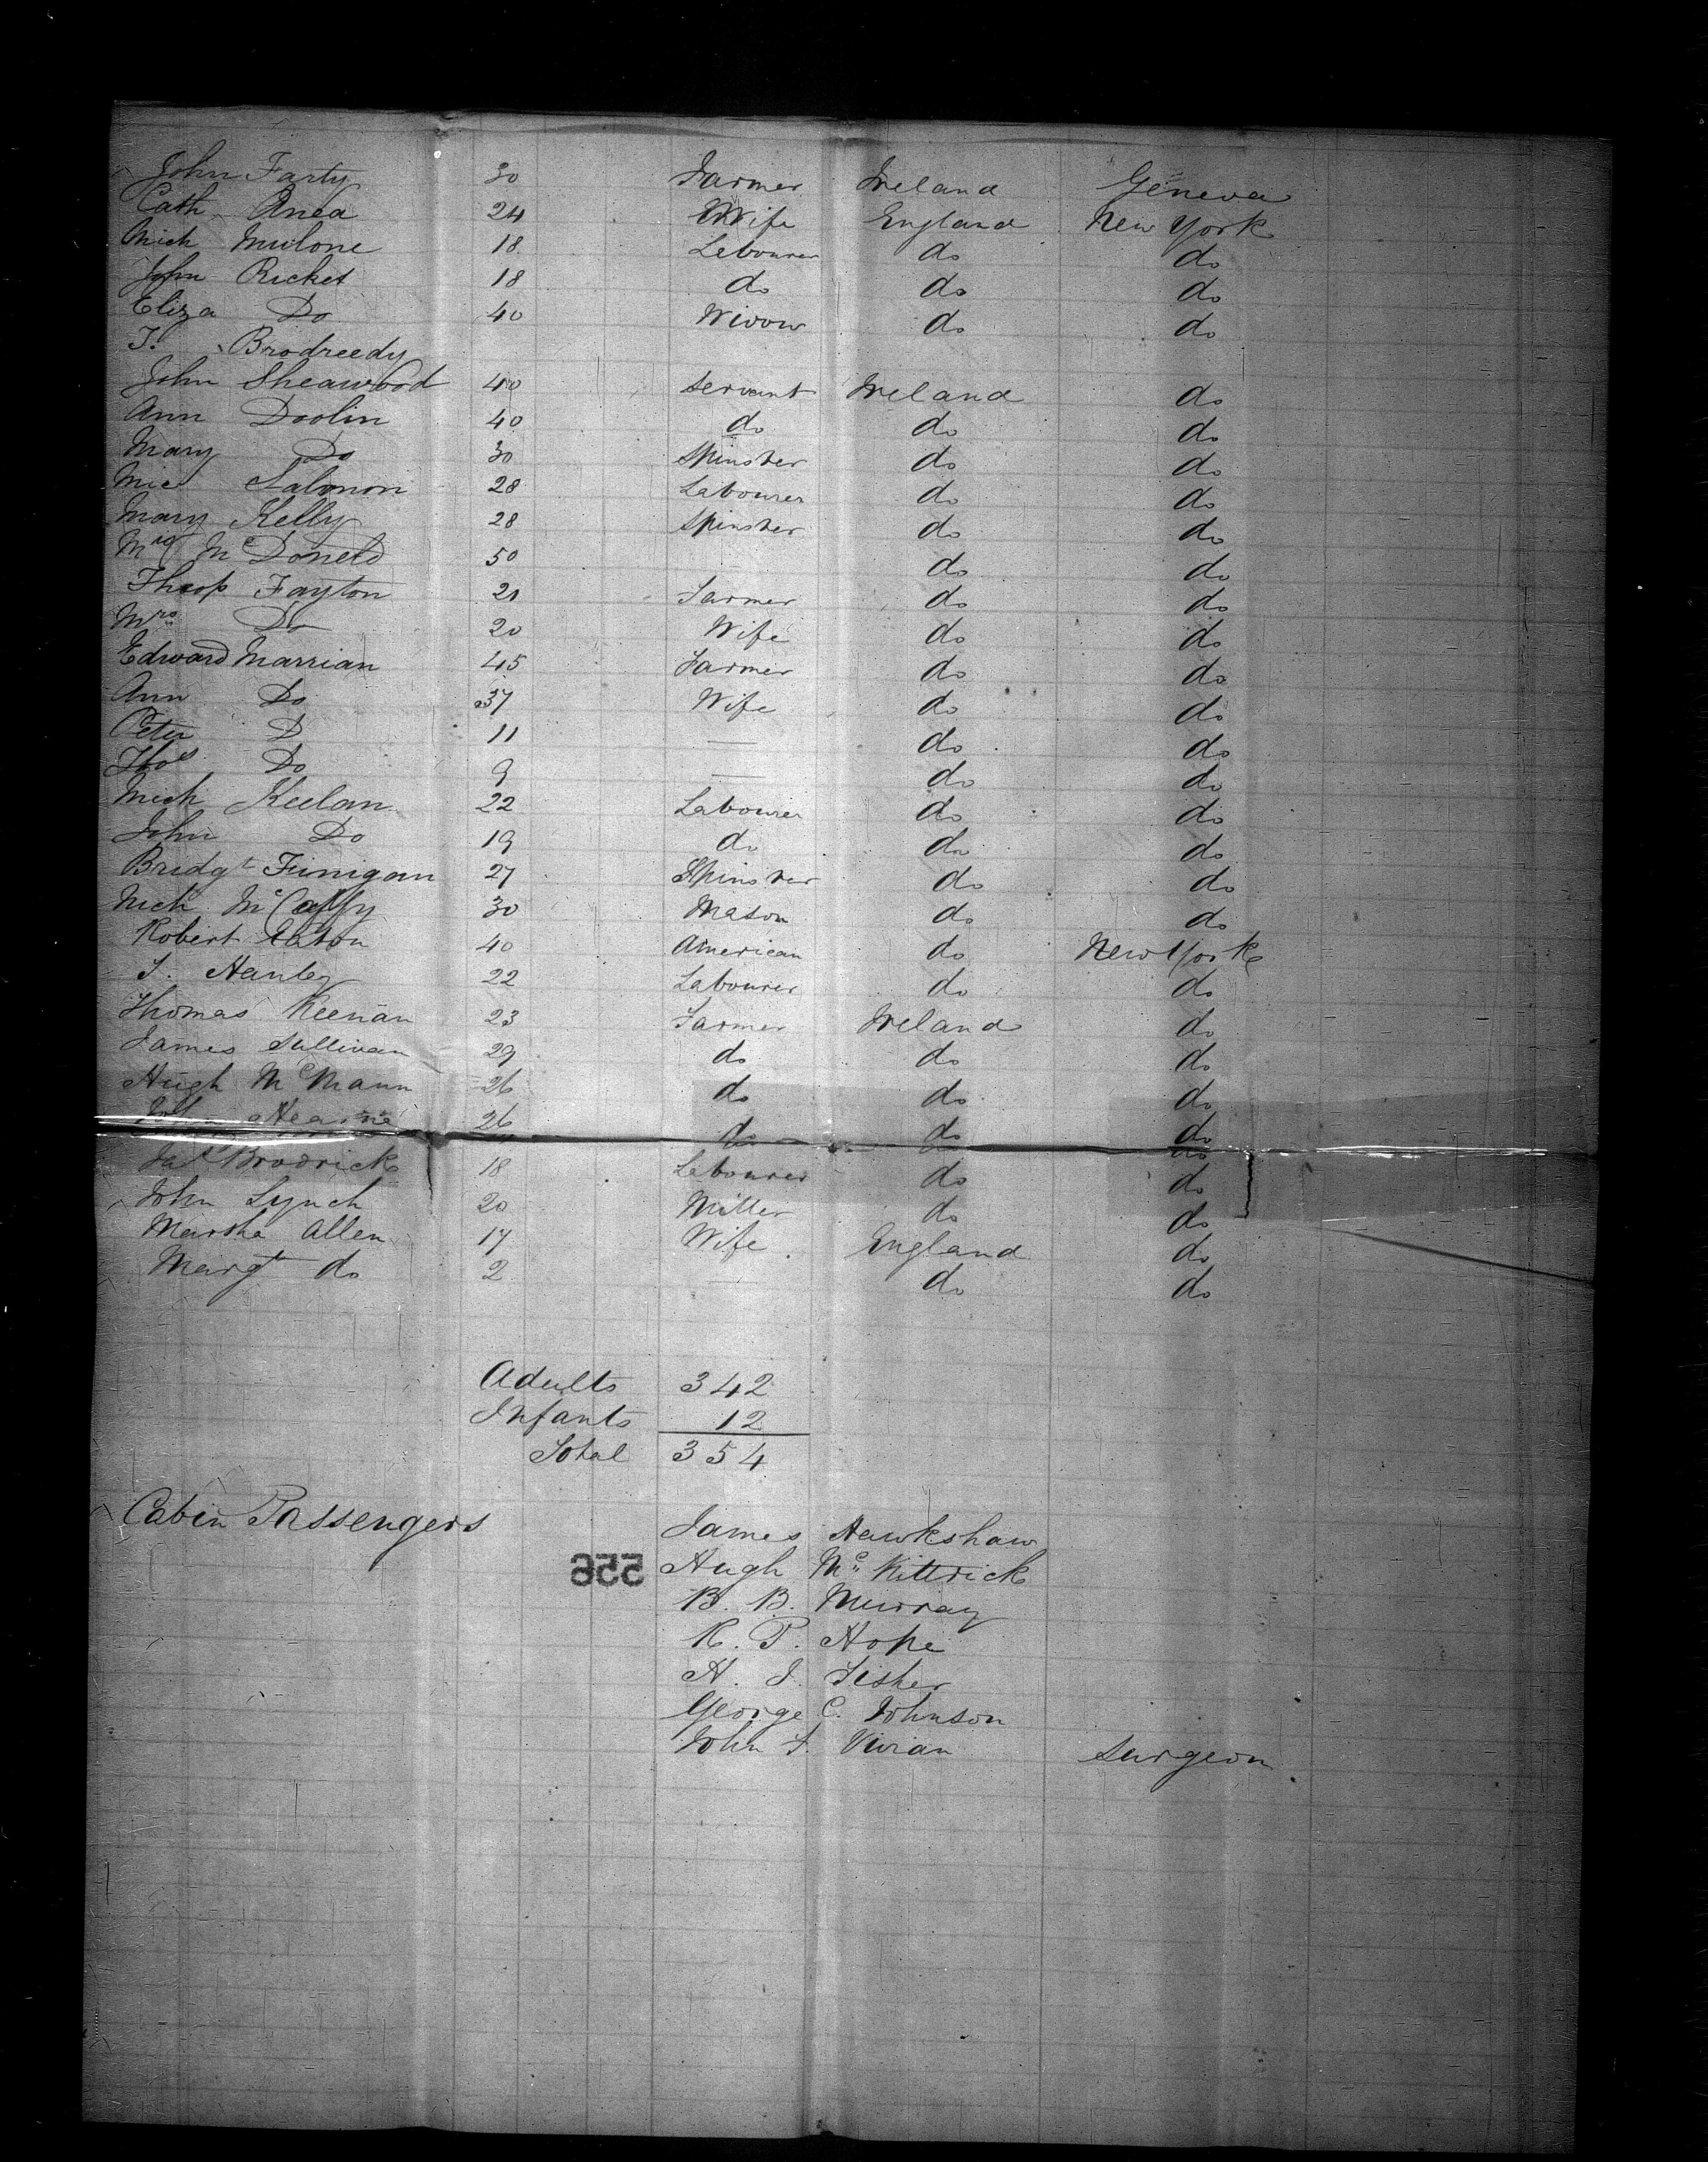 John Farty 30 Farmer Ireland Geneva
Cath Anea 24 Wife England New York
Mich Mulone 18 Lebourer do do
John Ricket 18 do do do
Eliza Do 40 Widow do do
T. Brodreedy
John Sheawood 40 Servant Ireland do
Ann Doolin 40 do do do
Mary Do 30 Spinster do do
Mic Salomon 28 Labourer do do
Mary Kelly 28 Spinster do do
McDoneld 50 do do
Fayton 21 Farmer do do
Mrs Do 20 Wife do do
Edward Marrian 45 Farmer do do
Ann Do 37 Wife do do
Peter D 11 — do do
Thos Do 9 — do do
Mich Keelan 22 Labourer do do
John Do 19 do do do
Bridgt Finigan 27 Spinster do do
Mich McCaffy 30 Mason do do
Robert Eaton 40 American do New York
T. Hanley 22 Labourer do do
Thomas Keenan 23 Farmer Ireland do
James Sullivan 29 do do do
Hugh McMann 26 do do do
John Hearne 26 do do do
Jas Brodrick 18 Lebourer do do
John Lynch 20 Miller do do
Martha Allen 17 Wife England do
Margt do 2 — do do
Adults 342
Infants 12
Total 354
Cabin Passengers James Hawkshaw
556 Hugh McKittrick
B. B. Murray
R. P. Hope
H. J. Fisher
George C. Johnson
John F. Vivian Surgeon